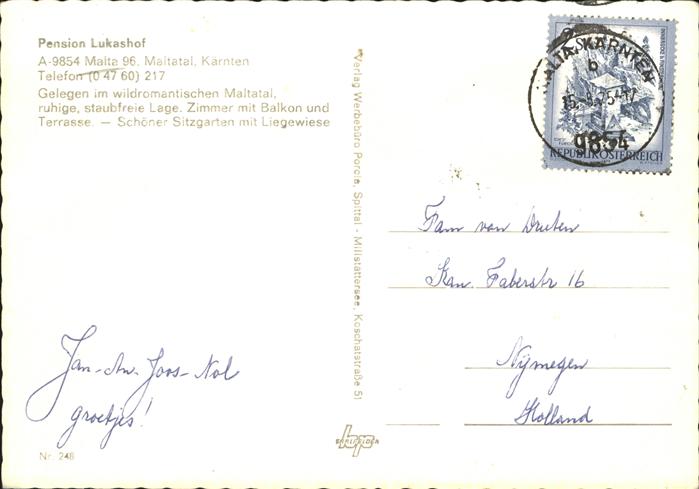 Pension Lukashof
A-9854 Malta 96. Maltatal, Kärnten
Telefon (0 47 60) 217
Gelegen im wildromantischen Maltatal,
ruhige, staubfreie Lage. Zimmer mit Balkon und
Terrasse. — Schöner Sitzgarten mit Liegewiese
Jan-An-Joos-Nol
groetjes!
Nr. 248
Verlag Werbebüro Porcia, Spittal - Millstättersee, Koschatstraße 51
MALTA, KÄRNTEN
b
9854
REPUBLIK ÖSTERREICH
Fam van Druten
Kan. Faberstr 16
Nijmegen
Holland
bp